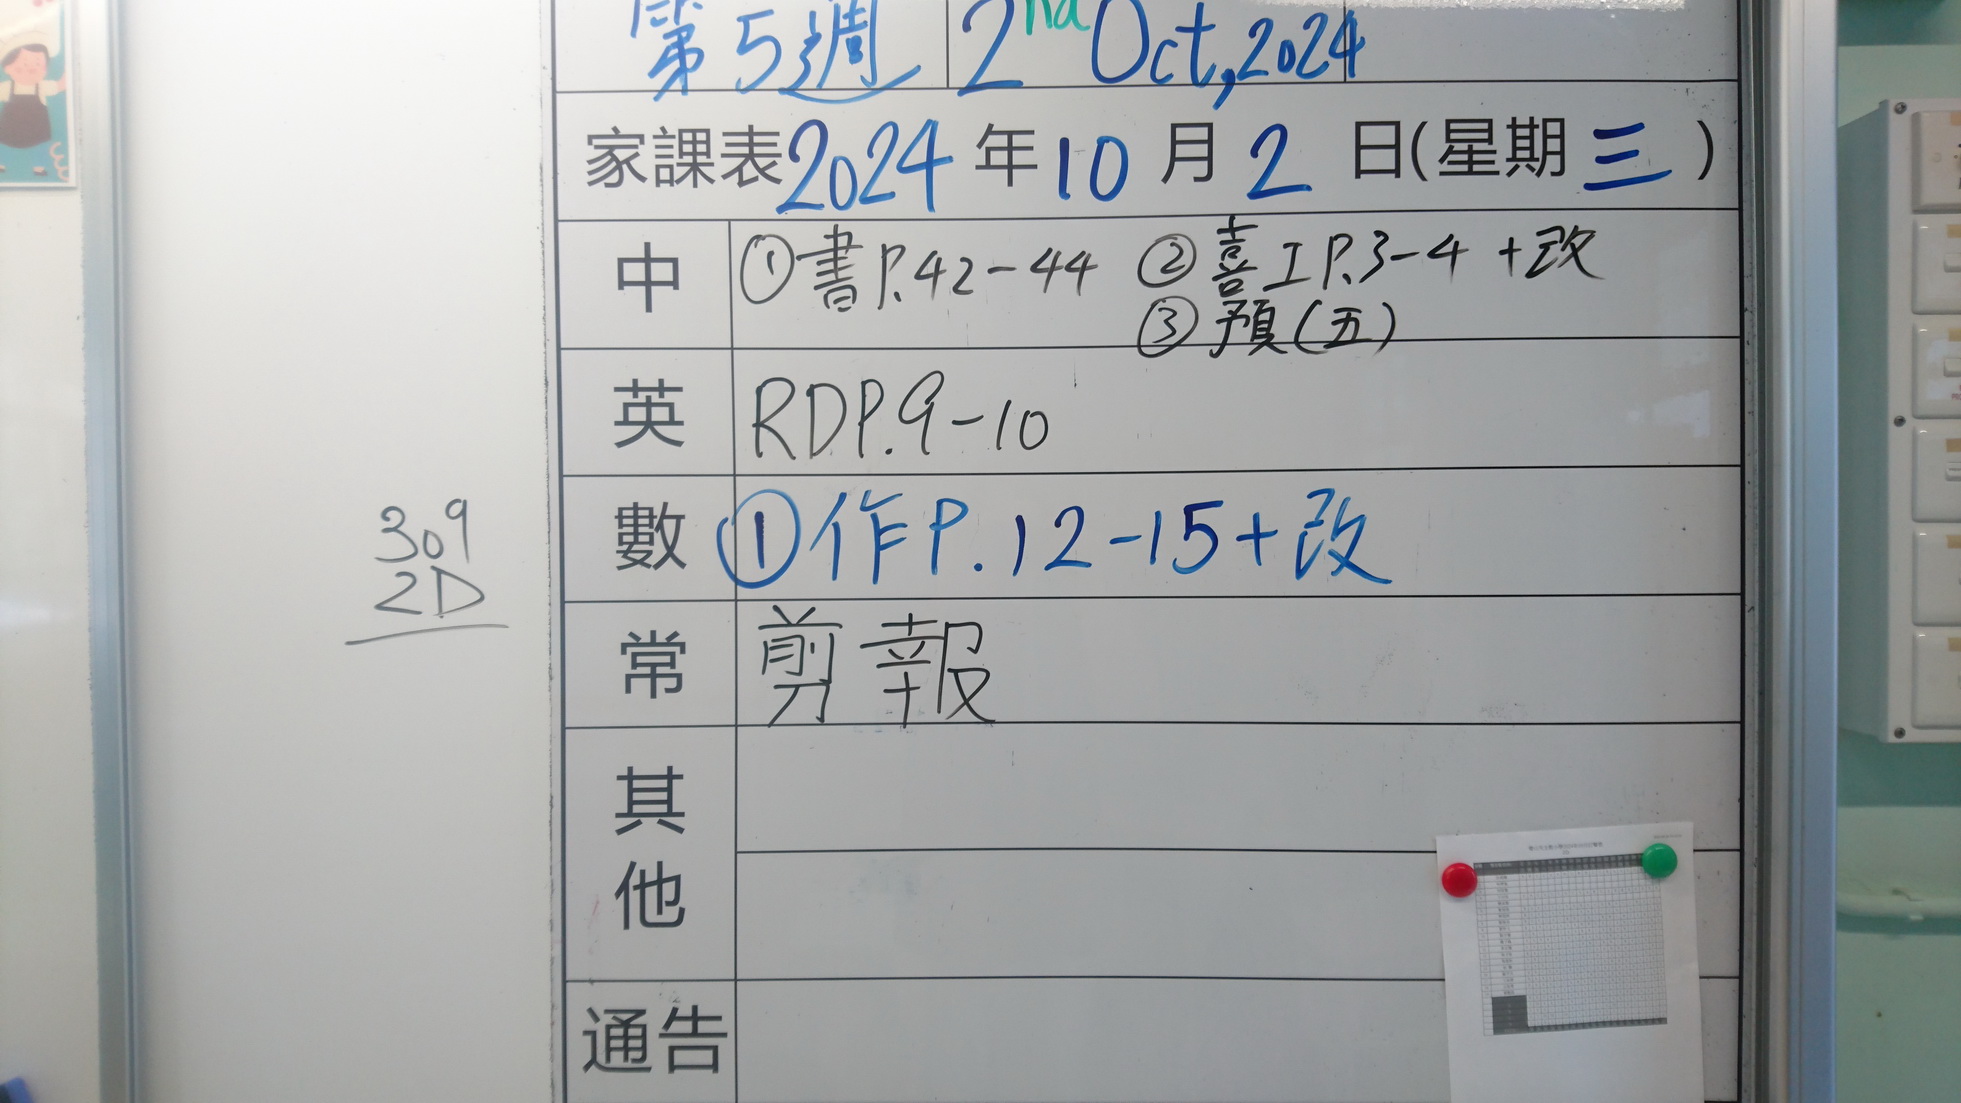 第5週 2nd Oct, 2024
家課表2024年10月2日(星期三)
中 ①書P.42-44 ②喜工P.3-4 +改
③預(五)
英 RDP.9-10
數 ①作P.12-15+改
309
2D
常 剪報
其他
通告